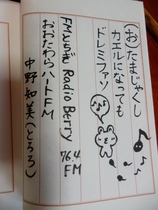 (お)たまじゃくし
カエルになっても
ドレミファソ
FMとちぎ Radio Berry
76.4
FM
おおたわらハートFM
中野知美(とろろ)